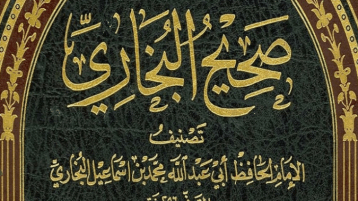 صَحِيحُ البُخَارِيِّ
تَصْنِيفُ
الإِمَامِ الحَافِظِ أَبِي عَبْدِ اللهِ مُحَمَّدِ بْنِ إِسْمَاعِيلَ البُخَارِيِّ